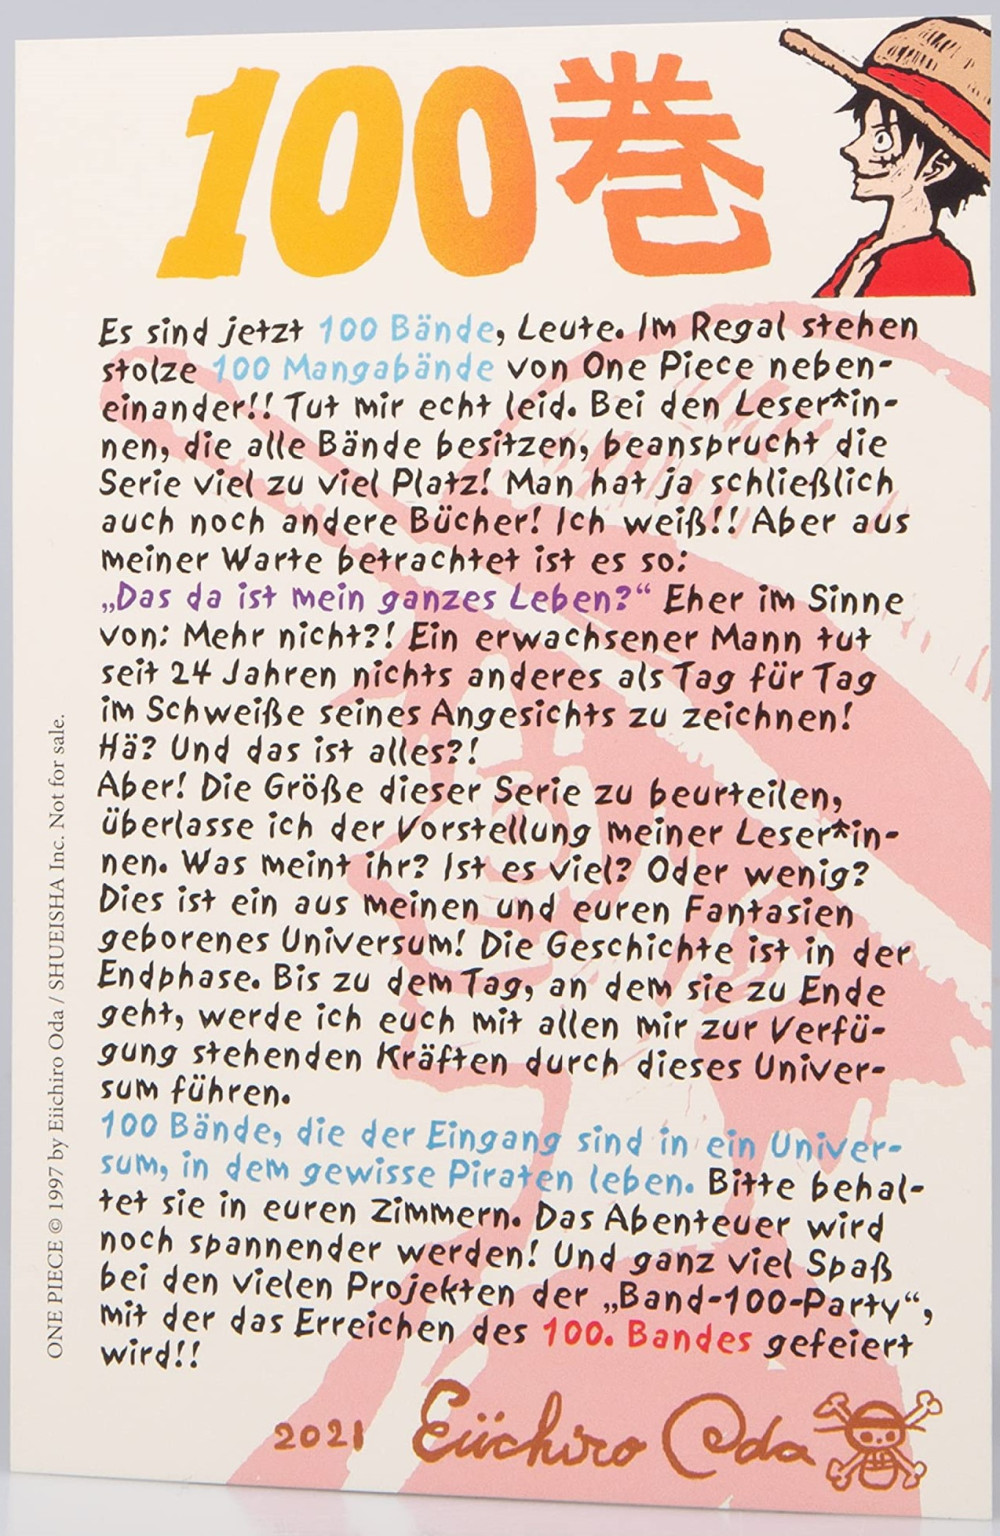 100巻
Es sind jetzt 100 Bände, Leute. Im Regal stehen
stolze 100 Mangabände von One Piece neben-
einander!! Tut mir echt leid. Bei den Leser*in-
nen, die alle Bände besitzen, beansprucht die
Serie viel zu viel Platz! Man hat ja schließlich
auch noch andere Bücher! Ich weiß!! Aber aus
meiner Warte betrachtet ist es so:
„Das da ist mein ganzes Leben?“ Eher im Sinne
von: Mehr nicht?! Ein erwachsener Mann tut
seit 24 Jahren nichts anderes als Tag für Tag
im Schweiße seines Angesichts zu zeichnen!
Hä? Und das ist alles?!
Aber! Die Größe dieser Serie zu beurteilen,
überlasse ich der Vorstellung meiner Leser*in-
nen. Was meint ihr? Ist es viel? Oder wenig?
Dies ist ein aus meinen und euren Fantasien
geborenes Universum! Die Geschichte ist in der
Endphase. Bis zu dem Tag, an dem sie zu Ende
geht, werde ich euch mit allen mir zur Verfü-
gung stehenden Kräften durch dieses Univer-
sum führen.
100 Bände, die der Eingang sind in ein Univer-
sum, in dem gewisse Piraten leben. Bitte behal-
tet sie in euren Zimmern. Das Abenteuer wird
noch spannender werden! Und ganz viel Spaß
bei den vielen Projekten der „Band-100-Party“,
mit der das Erreichen des 100. Bandes gefeiert
wird!!
2021 Eiichiro Oda
ONE PIECE © 1997 by Eiichiro Oda / SHUEISHA Inc. Not for sale.